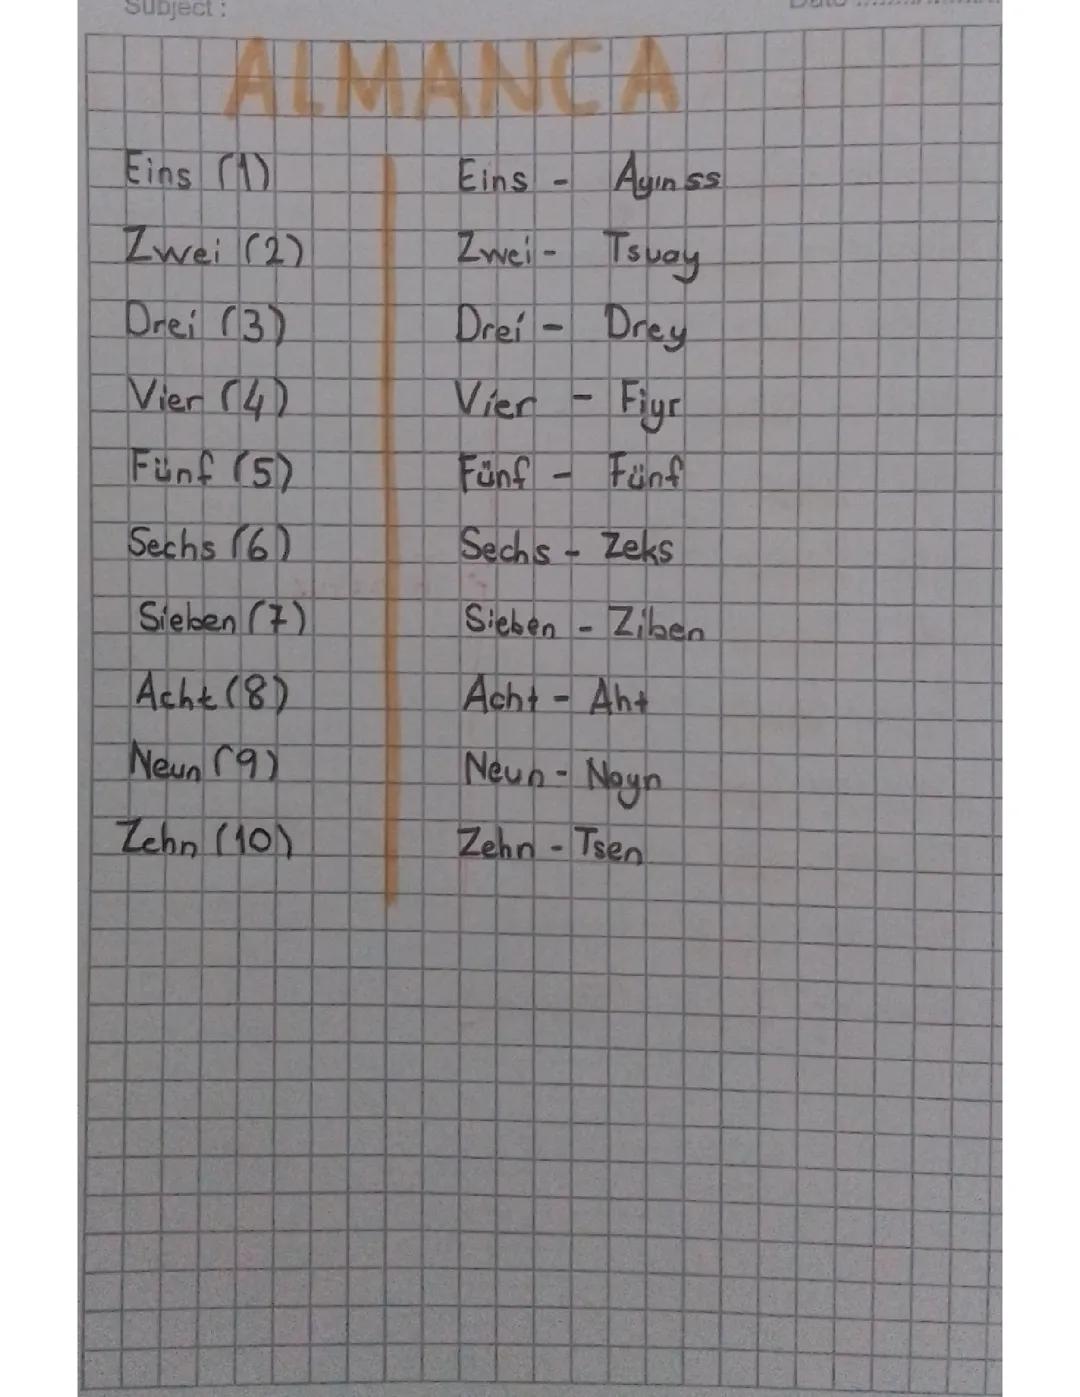 Subject :
ALMANCA
Eins (1)
Zwei (2)
Drei (3)
Vier (4)
Fünf (5)
Sechs (6)
Sieben (7)
Acht (8)
Neun (9)
Zehn (10)
Eins - Ayınss
Zwei - Tsvay
Drei - Drey
Vier - Fiyr
Fünf - Fünf
Sechs - Zeks
Sieben - Ziben
Acht - Aht
Neun - Noyn
Zehn - Tsen